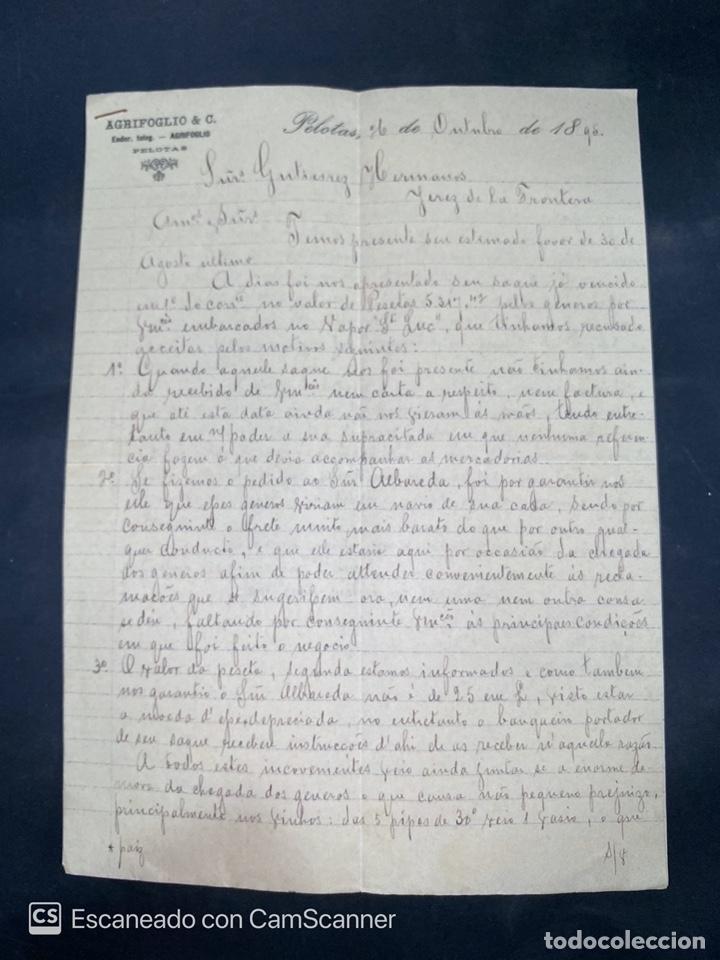 AGRIFOGLIO & C.
Ender. teleg. — AGRIFOGLIO
PELOTAS
Pelotas, 26 de Outubro de 1895.
Sñrs. Gutierrez Hermanos
Jerez de la Frontera
Amos e Sñrs
Temos presente seu estimado favor de 30 de
Agosto ultimo.
A dias foi nos apresentado seu saque já vencido
em 1º do corrte no valor de Pesetas 5.317, pelos generos por
Vmces embarcados no Vapor "St Luc", que tinhamos recusado
acceitar pelos motivos seguintes:
1º Quando aquelle saque nos foi presente não tinhamos ain-
da recebido de Vmcês nem carta a respeito, nem factura, e
que até esta data ainda não nos vieram ás mãos, tendo entre-
tanto em n/ poder a sua supracitada em que nenhuma referen-
cia fazem á que devia accompanhar as mercadorias.
2º Se fizemos o pedido ao Sñr Albareda, foi por garantir nos
elle que esses generos viriam em navio de sua casa, sendo por
conseguinte o frete muito mais barato do que por outro qual-
quer conducto, e que elle estaria aqui por occasião da chegada
dos generos afim de poder attender convenientemente ás recla-
mações que se sugerissem ora, nem uma nem outra cousa
se deu, faltando por conseguinte Vmces ás principaes condições
em que foi feito o negocio
3º O valor da peseta, segundo estamos informados e como tambem
nos garantio o Sñr Albareda não é de 25 em £, visto estar
a moeda d'esse * depreciada, no entretanto o banqueiro portador
de seu saque recebeu instrucções d'ahi de as receber n'aquela razão
A todos estes inconvenientes veio ainda juntar se a enorme de-
mora da chegada dos generos o que causa não pequeno prejuizo,
principalmente nos vinhos: das 5 pipas de 30º veio 1 vasia, o que
* paiz
S/S
CS Escaneado con CamScanner
todocoleccion